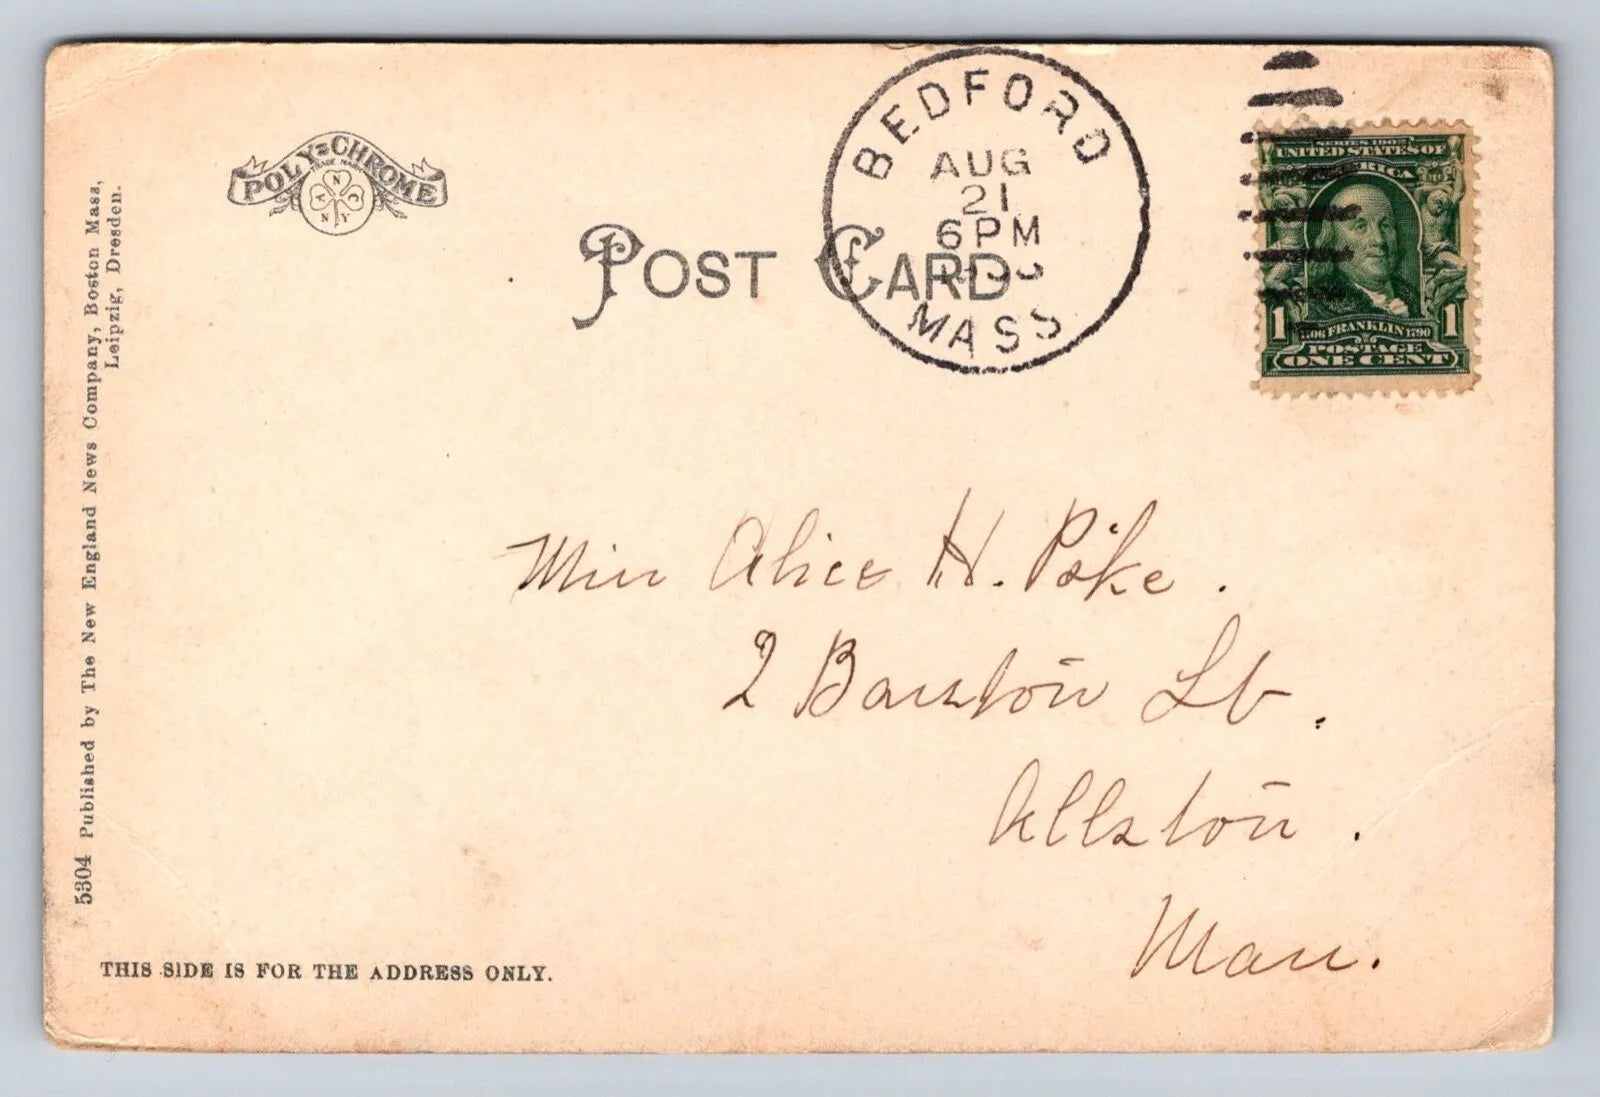 POLY-CHROME
TRADE MARK
A N C
N Y
POST CARD
BEDFORD
AUG
21
6 PM
MASS
SERIES 1902
UNITED STATES OF
AMERICA
1 1706 FRANKLIN 1790 1
POSTAGE
ONE CENT
Miss Alice H. Pike.
2 Barstow St.
Allston.
Mass.
5304 Published by The New England News Company, Boston Mass,
Leipzig, Dresden.
THIS SIDE IS FOR THE ADDRESS ONLY.